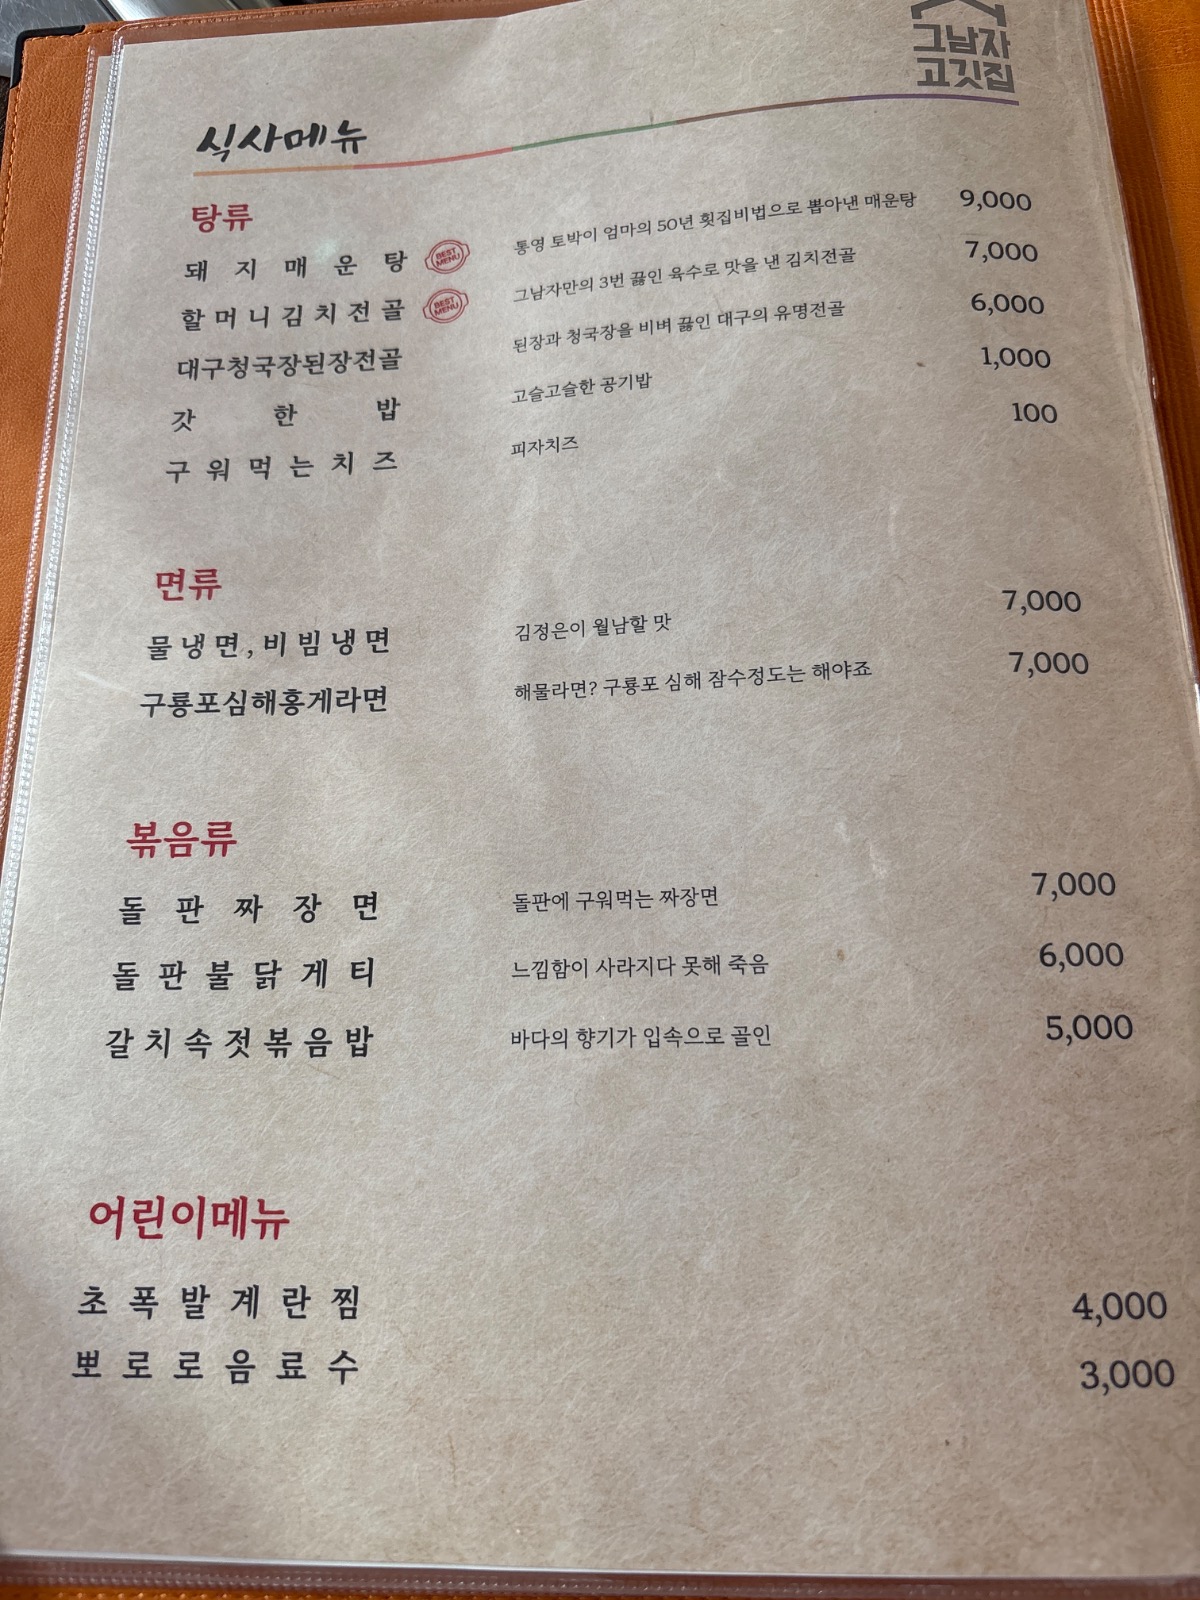 그남자
고깃집
식사메뉴
탕류
돼지매운탕 BEST MENU 통영 토박이 엄마의 50년 횟집비법으로 뽑아낸 매운탕 9,000
할머니김치전골 BEST MENU 그남자만의 3번 끓인 육수로 맛을 낸 김치전골 7,000
대구청국장된장전골 된장과 청국장을 비벼 끓인 대구의 유명전골 6,000
갓한밥 고슬고슬한 공기밥 1,000
구워먹는치즈 피자치즈 100
면류
물냉면,비빔냉면 김정은이 월남할 맛 7,000
구룡포심해홍게라면 해물라면? 구룡포 심해 잠수정도는 해야죠 7,000
볶음류
돌판짜장면 돌판에 구워먹는 짜장면 7,000
돌판불닭게티 느낌함이 사라지다 못해 죽음 6,000
갈치속젓볶음밥 바다의 향기가 입속으로 골인 5,000
어린이메뉴
초폭발계란찜 4,000
뽀로로음료수 3,000